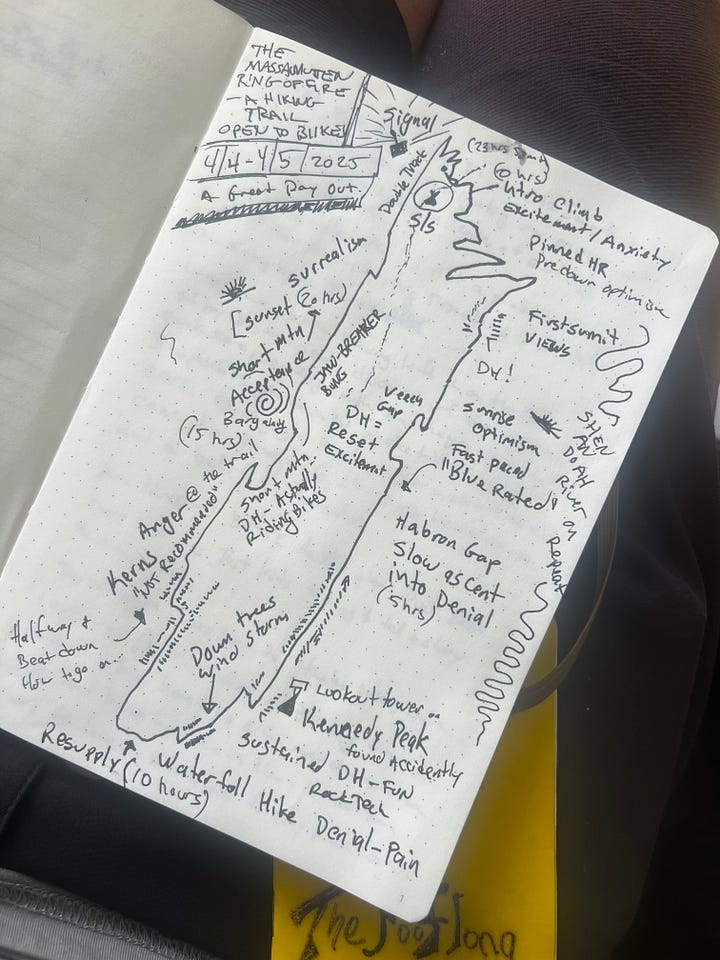 THE
MASSANUTTEN
RING OF FIRE
- A HIKING
TRAIL
OPEN TO BIKES
4/4-4/5 2025
A Great Day Out.
Signal
Double Track
S/S
(0 hrs)
Intro Climb
Excitement/Anxiety
Pinned HR
Predawn optimism
First summit
VIEWS
DH!
SHEN
AN
DOAH
River on
Sunrise
Optimism
Fast paced
"Blue Rated"
Veech
Gap
DH =
Reset
Excitement
Habron Gap
Slow ascent
into Denial
(5hrs)
Lookout tower on
Kennedy Peak
found Accidently
Sustained DH-Fun
Rock Tech
Down trees
wind storm
Waterfall Hike Denial-Pain
Resupply (10 hours)
Halfway &
Beat down
How to go on...
Kerns "NOT Recommended"
Anger @ the trail
(15 hrs)
Bargaining
Acceptance
short mtn
short mtn
DH- Actually
Riding Bikes
JAW-BREAKER
[sunset (20 hrs)
surrealism
The Footlong